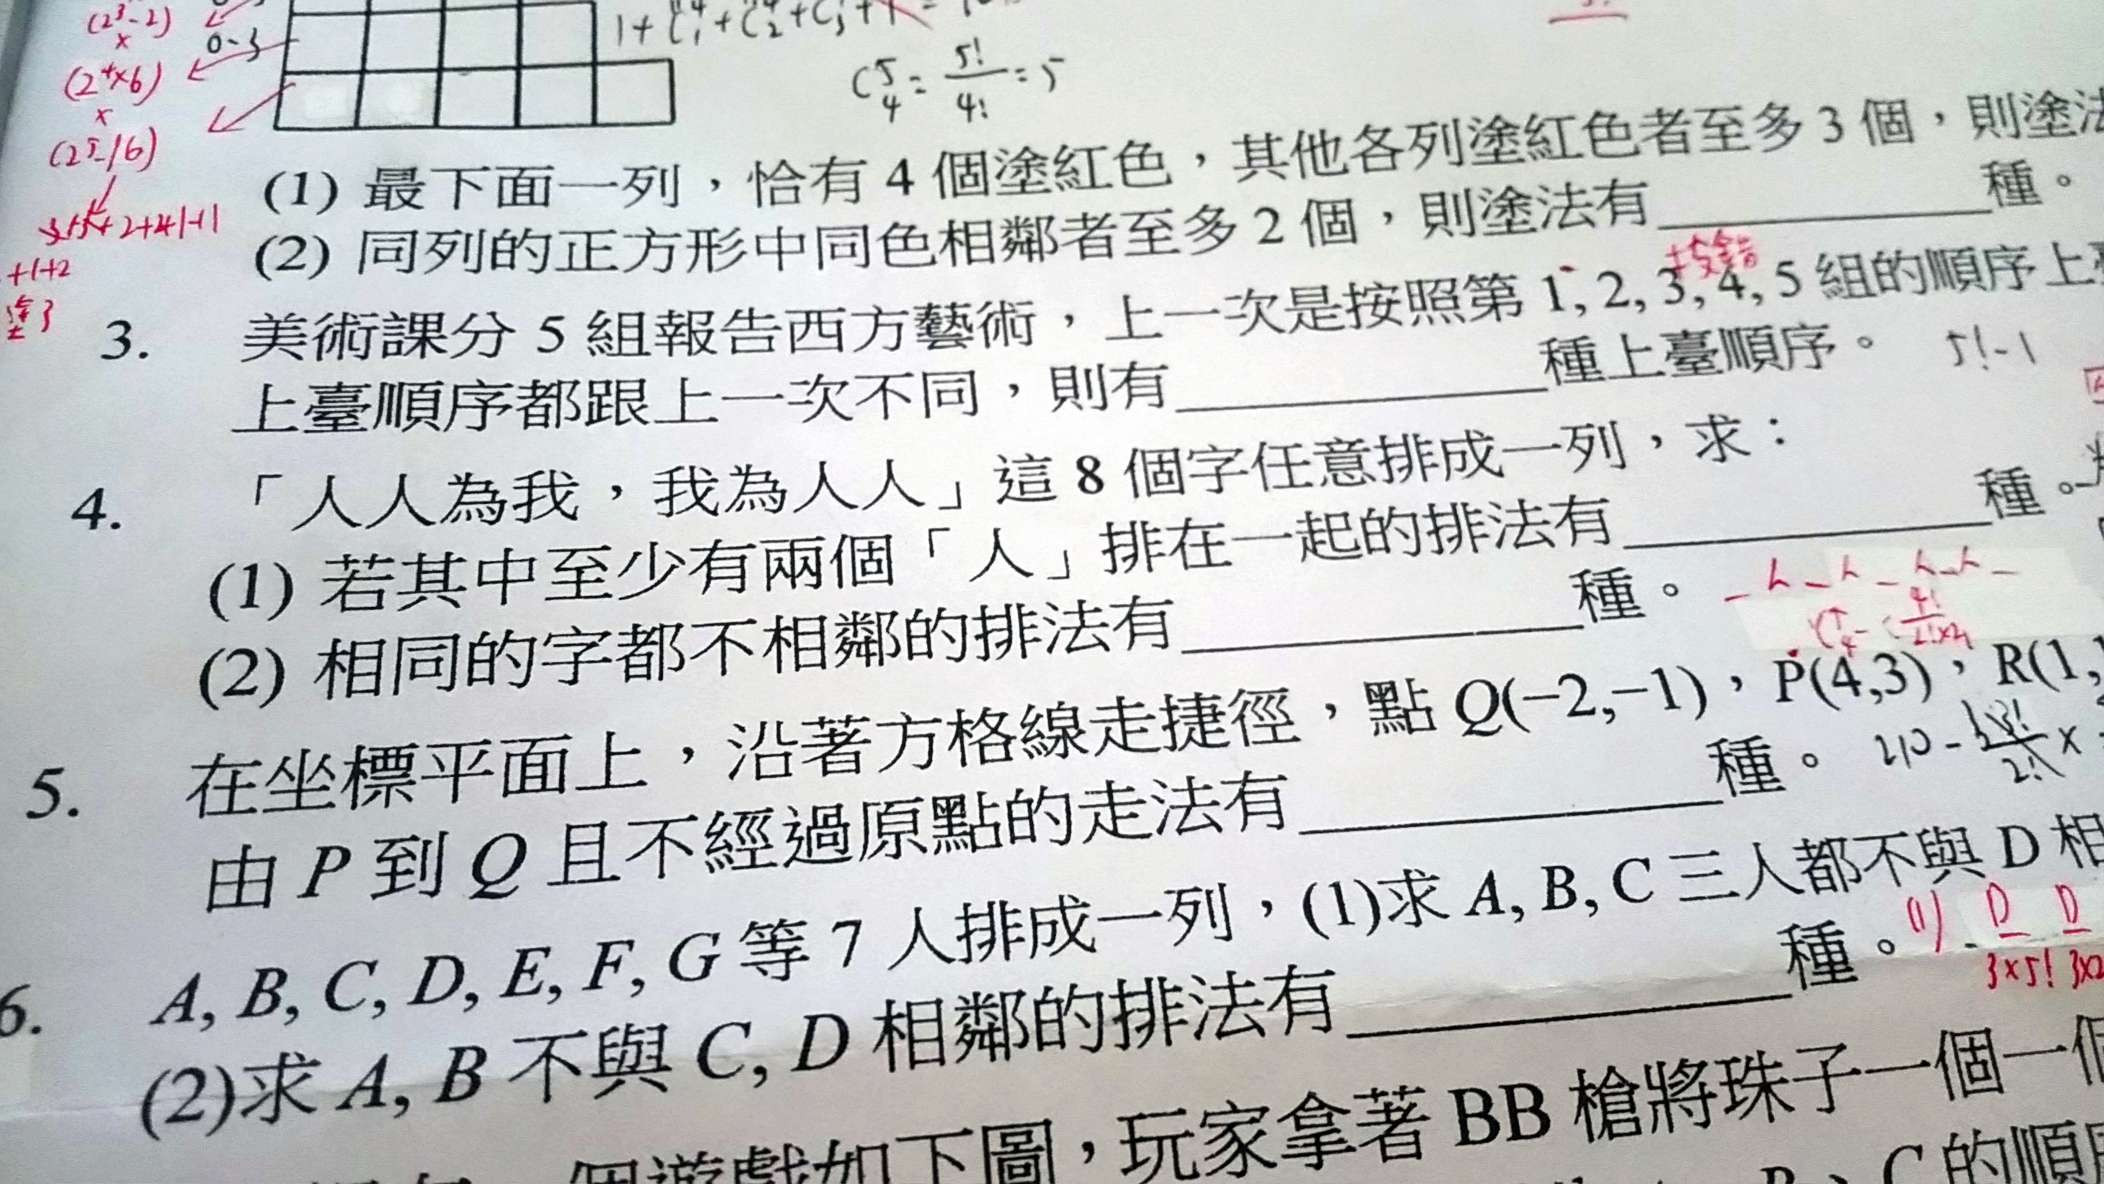 (2³-2)
×
0~3
(2⁴×6)
×
(2⁵-16)
1+C⁴₁+C⁴₂+C₃+1
C⁵₄=5!/4!=5
(1) 最下面一列，恰有 4 個塗紅色，其他各列塗紅色者至多 3 個，則塗法
種。
(2) 同列的正方形中同色相鄰者至多 2 個，則塗法有
+1+2
3. 美術課分 5 組報告西方藝術，上一次是按照第 1, 2, 3, 4, 5 組的順序上
上臺順序都跟上一次不同，則有 種上臺順序。 5!-1
4. 「人人為我，我為人人」這 8 個字任意排成一列，求：
(1) 若其中至少有兩個「人」排在一起的排法有 種。
(2) 相同的字都不相鄰的排法有 種。
5. 在坐標平面上，沿著方格線走捷徑，點 Q(−2,−1)，P(4,3)，R(1,
由 P 到 Q 且不經過原點的走法有 種。 210-
6. A, B, C, D, E, F, G 等 7 人排成一列，(1)求 A, B, C 三人都不與 D 相
(2)求 A, B 不與 C, D 相鄰的排法有 種。
(1) D D
3×5! 3×2
個遊戲如下圖，玩家拿著 BB 槍將珠子一個一個
C 的順